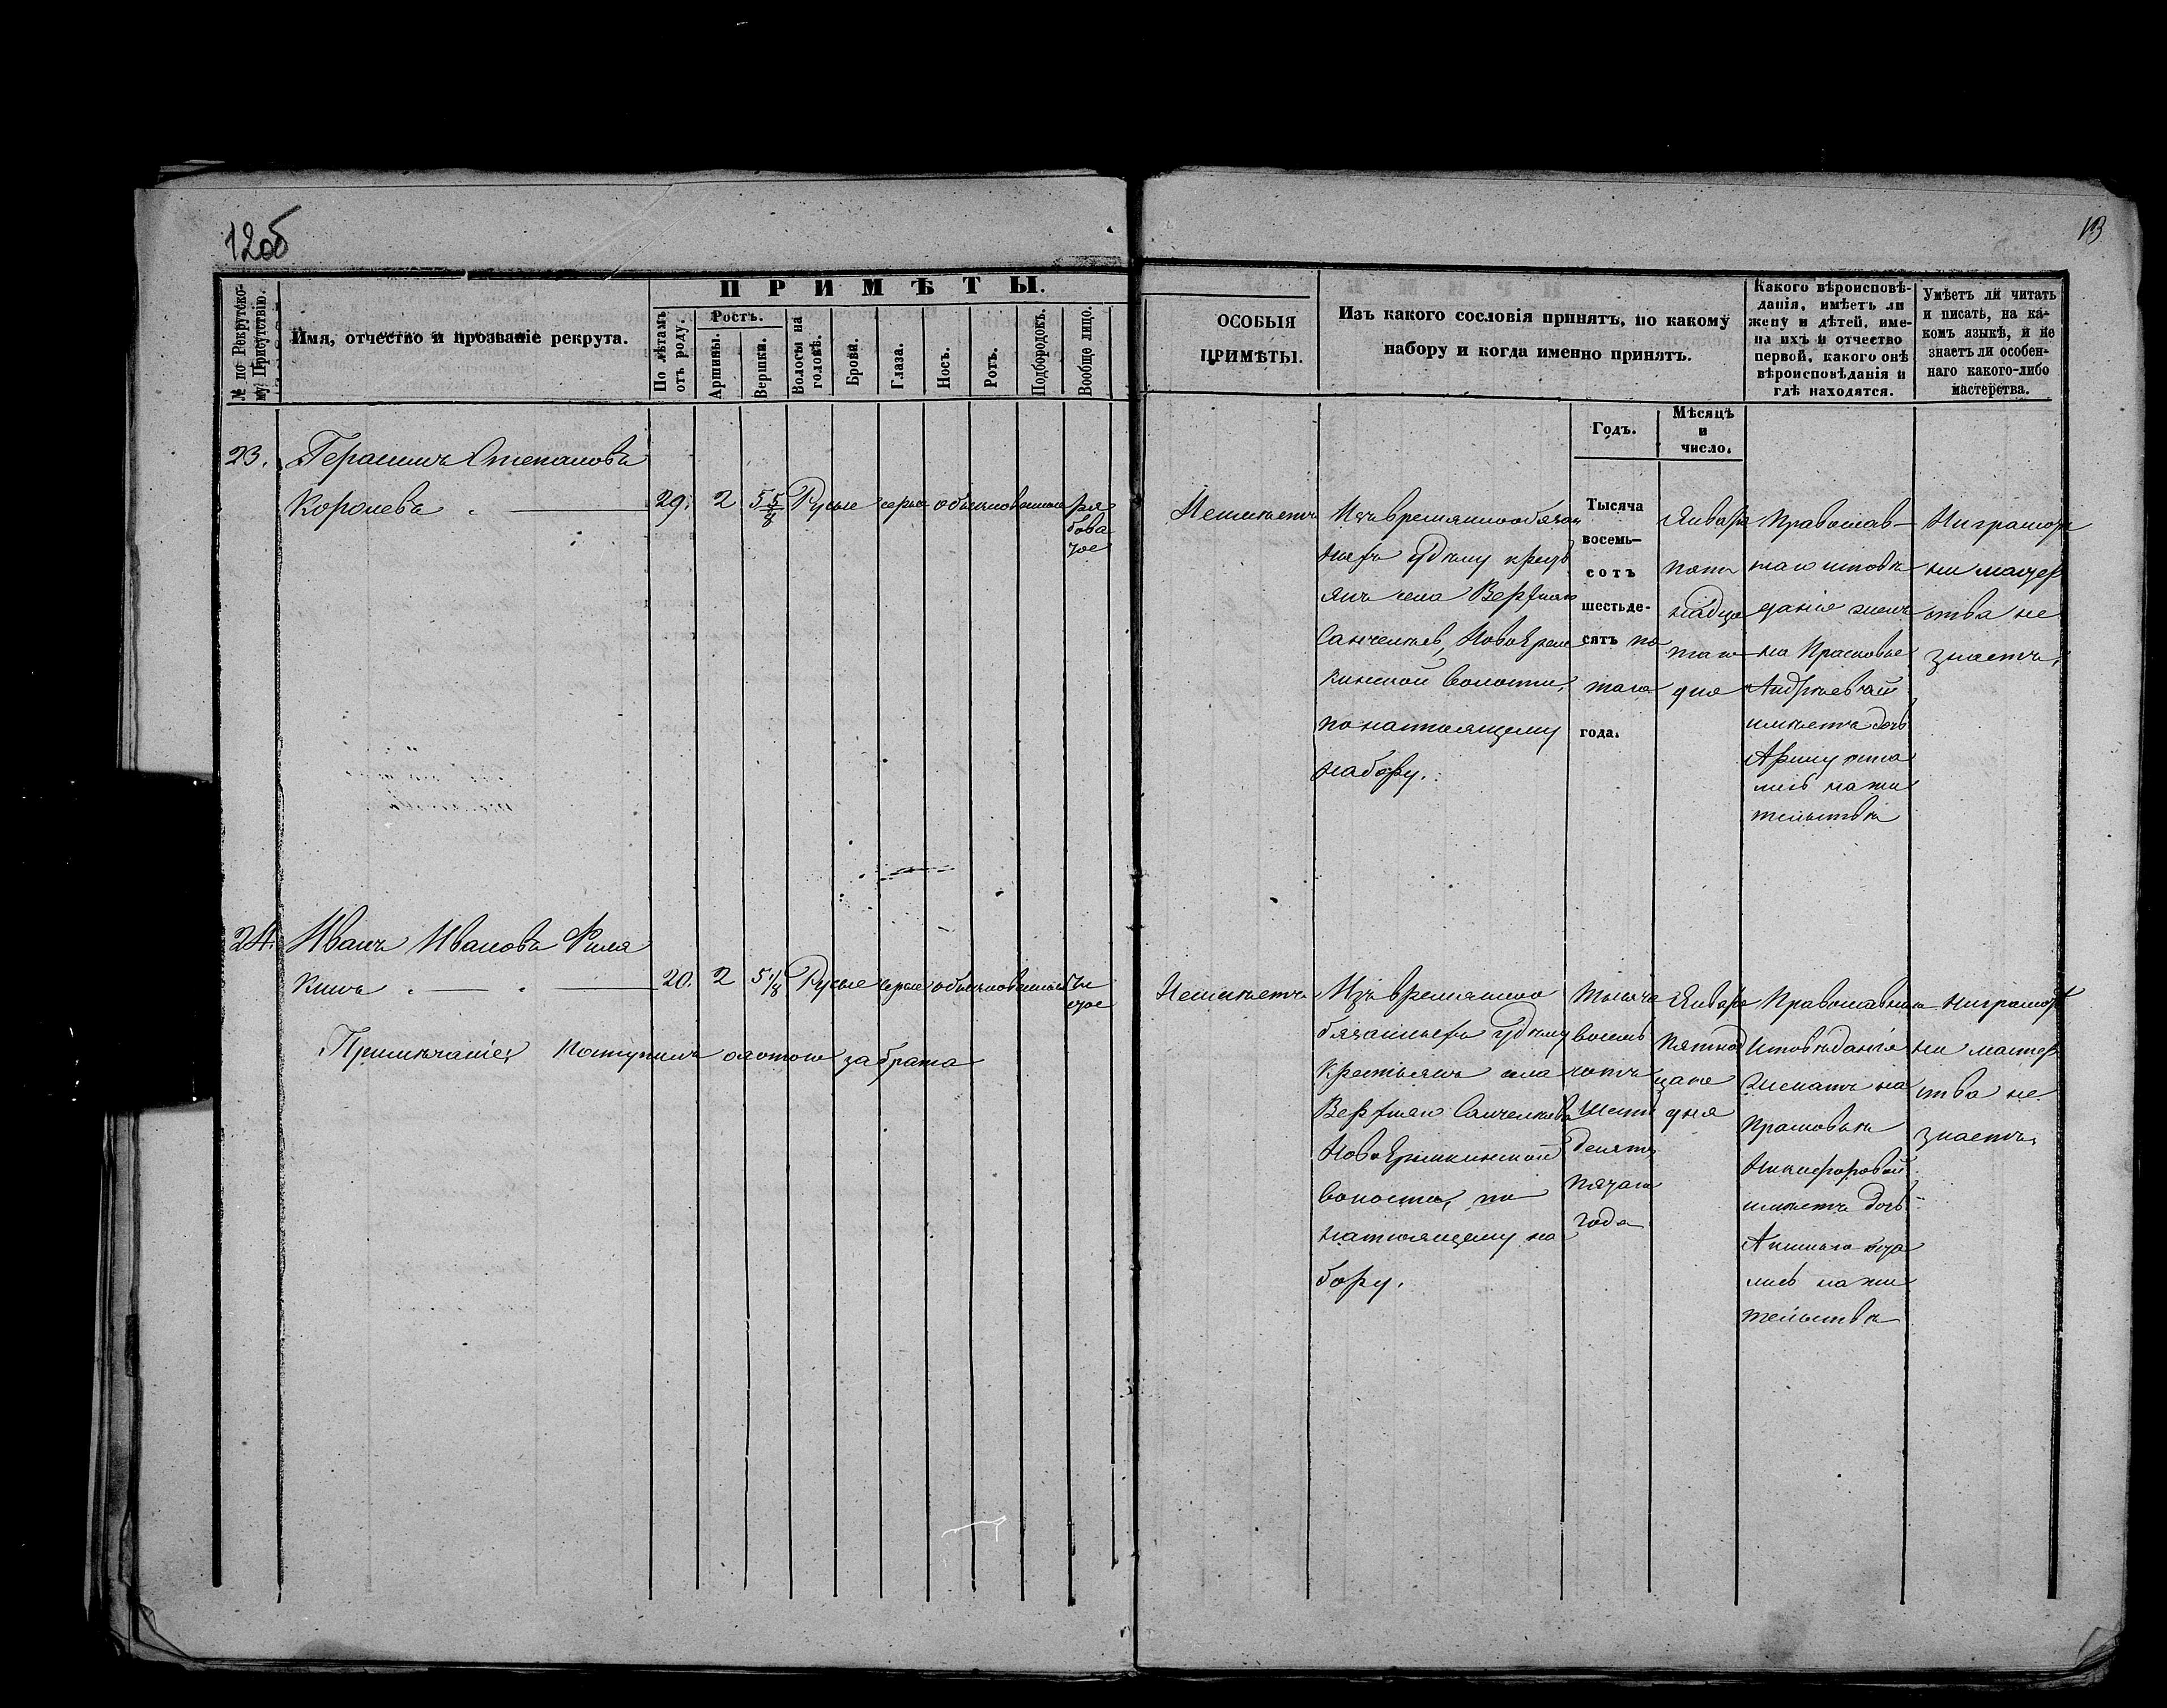 12об
13
№ по Рекрутско-
му Присутствію.
Имя, отчество и прозваніе рекрута.
ПРИМѢТЫ.
По лѣтамъ
отъ роду.
Ростъ.
Аршины.
Вершки.
Волосы на
головѣ.
Брови.
Глаза.
Носъ.
Ротъ.
Подбородокъ.
Вообще лицо.
ОСОБЫЯ
ПРИМѢТЫ.
Изъ какого сословія принятъ, по какому
набору и когда именно принятъ.
Годъ.
Мѣсяцъ
и
число.
Какого вѣроисповѣ-
данія, имѣетъ ли
жену и дѣтей, име-
на ихъ и отчество
первой, какого онѣ
вѣроисповѣданія и
гдѣ находятся.
Умѣетъ ли читать
и писать, на ка-
комъ языкѣ, и не
знаетъ ли особен-
наго какого-либо
мастерства.
23. Герасимъ Степановъ
Королевъ
29. 2 5 5/8 Русые серые обыкновенные ря
бова
тое
Неимѣетъ
Изъ временнообязан
ныхъ крест
янъ села Верхняго
Санчелѣева, Ново
кинской волости,
по настоящему
набору.
Тысяча
восемь-
сотъ
шестьде-
сятъ пя
таго
года.
Января
пят
надца
таго
дня
Православ-
наго исповѣ
данія женатъ
на Прасковье
Андреевной
имѣетъ дочь
Арину оста
лись на жи
тельствѣ
Ниграмотѣ
ни мастер
ства не
знаетъ.
24. Иванъ Ивановъ Филя
кинъ
20. 2 5 1/8 Русые серые обыкновенные Чи
стое
Примѣчаніе, Поступилъ охотою за брата
Неимѣетъ
Изъ временно
бязанныхъ
Крестьянъ села
Верхняго Санчелѣева
Ново
волости, по
настоящему на
бору.
Тысяча
восемь
сотъ
шесть
десятъ
пятаго
года
Января
Пятнад
цаго
дня
Православнаго
Исповѣданія
женатъ на
Прасковьѣ
Никифоровой
имѣетъ дочь
Аксинью оста
лись на жи
тельствѣ
Ниграмотѣ
ни мастер
ства не
знаетъ,